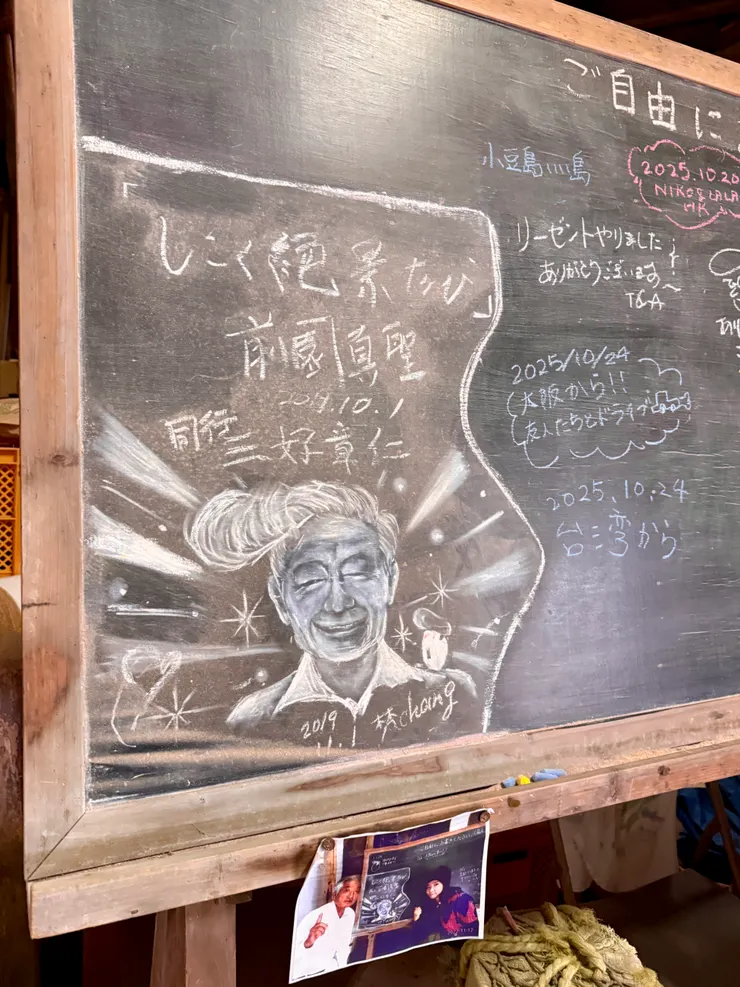 「しこく絶景たび」
前園真聖
2019.10.1
同行
三好章仁
2019
chang
ご自由に
小豆島
島
2025.10.20
NIKO & LALA
HK
リーゼントやりました
ありがとうございます
T&A
2025/10/24
大阪から!!
友人たちとドライブ
2025.10.24
台湾から